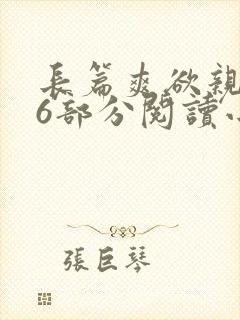 長篇爽欲親
6部分閱讀
張巨琴